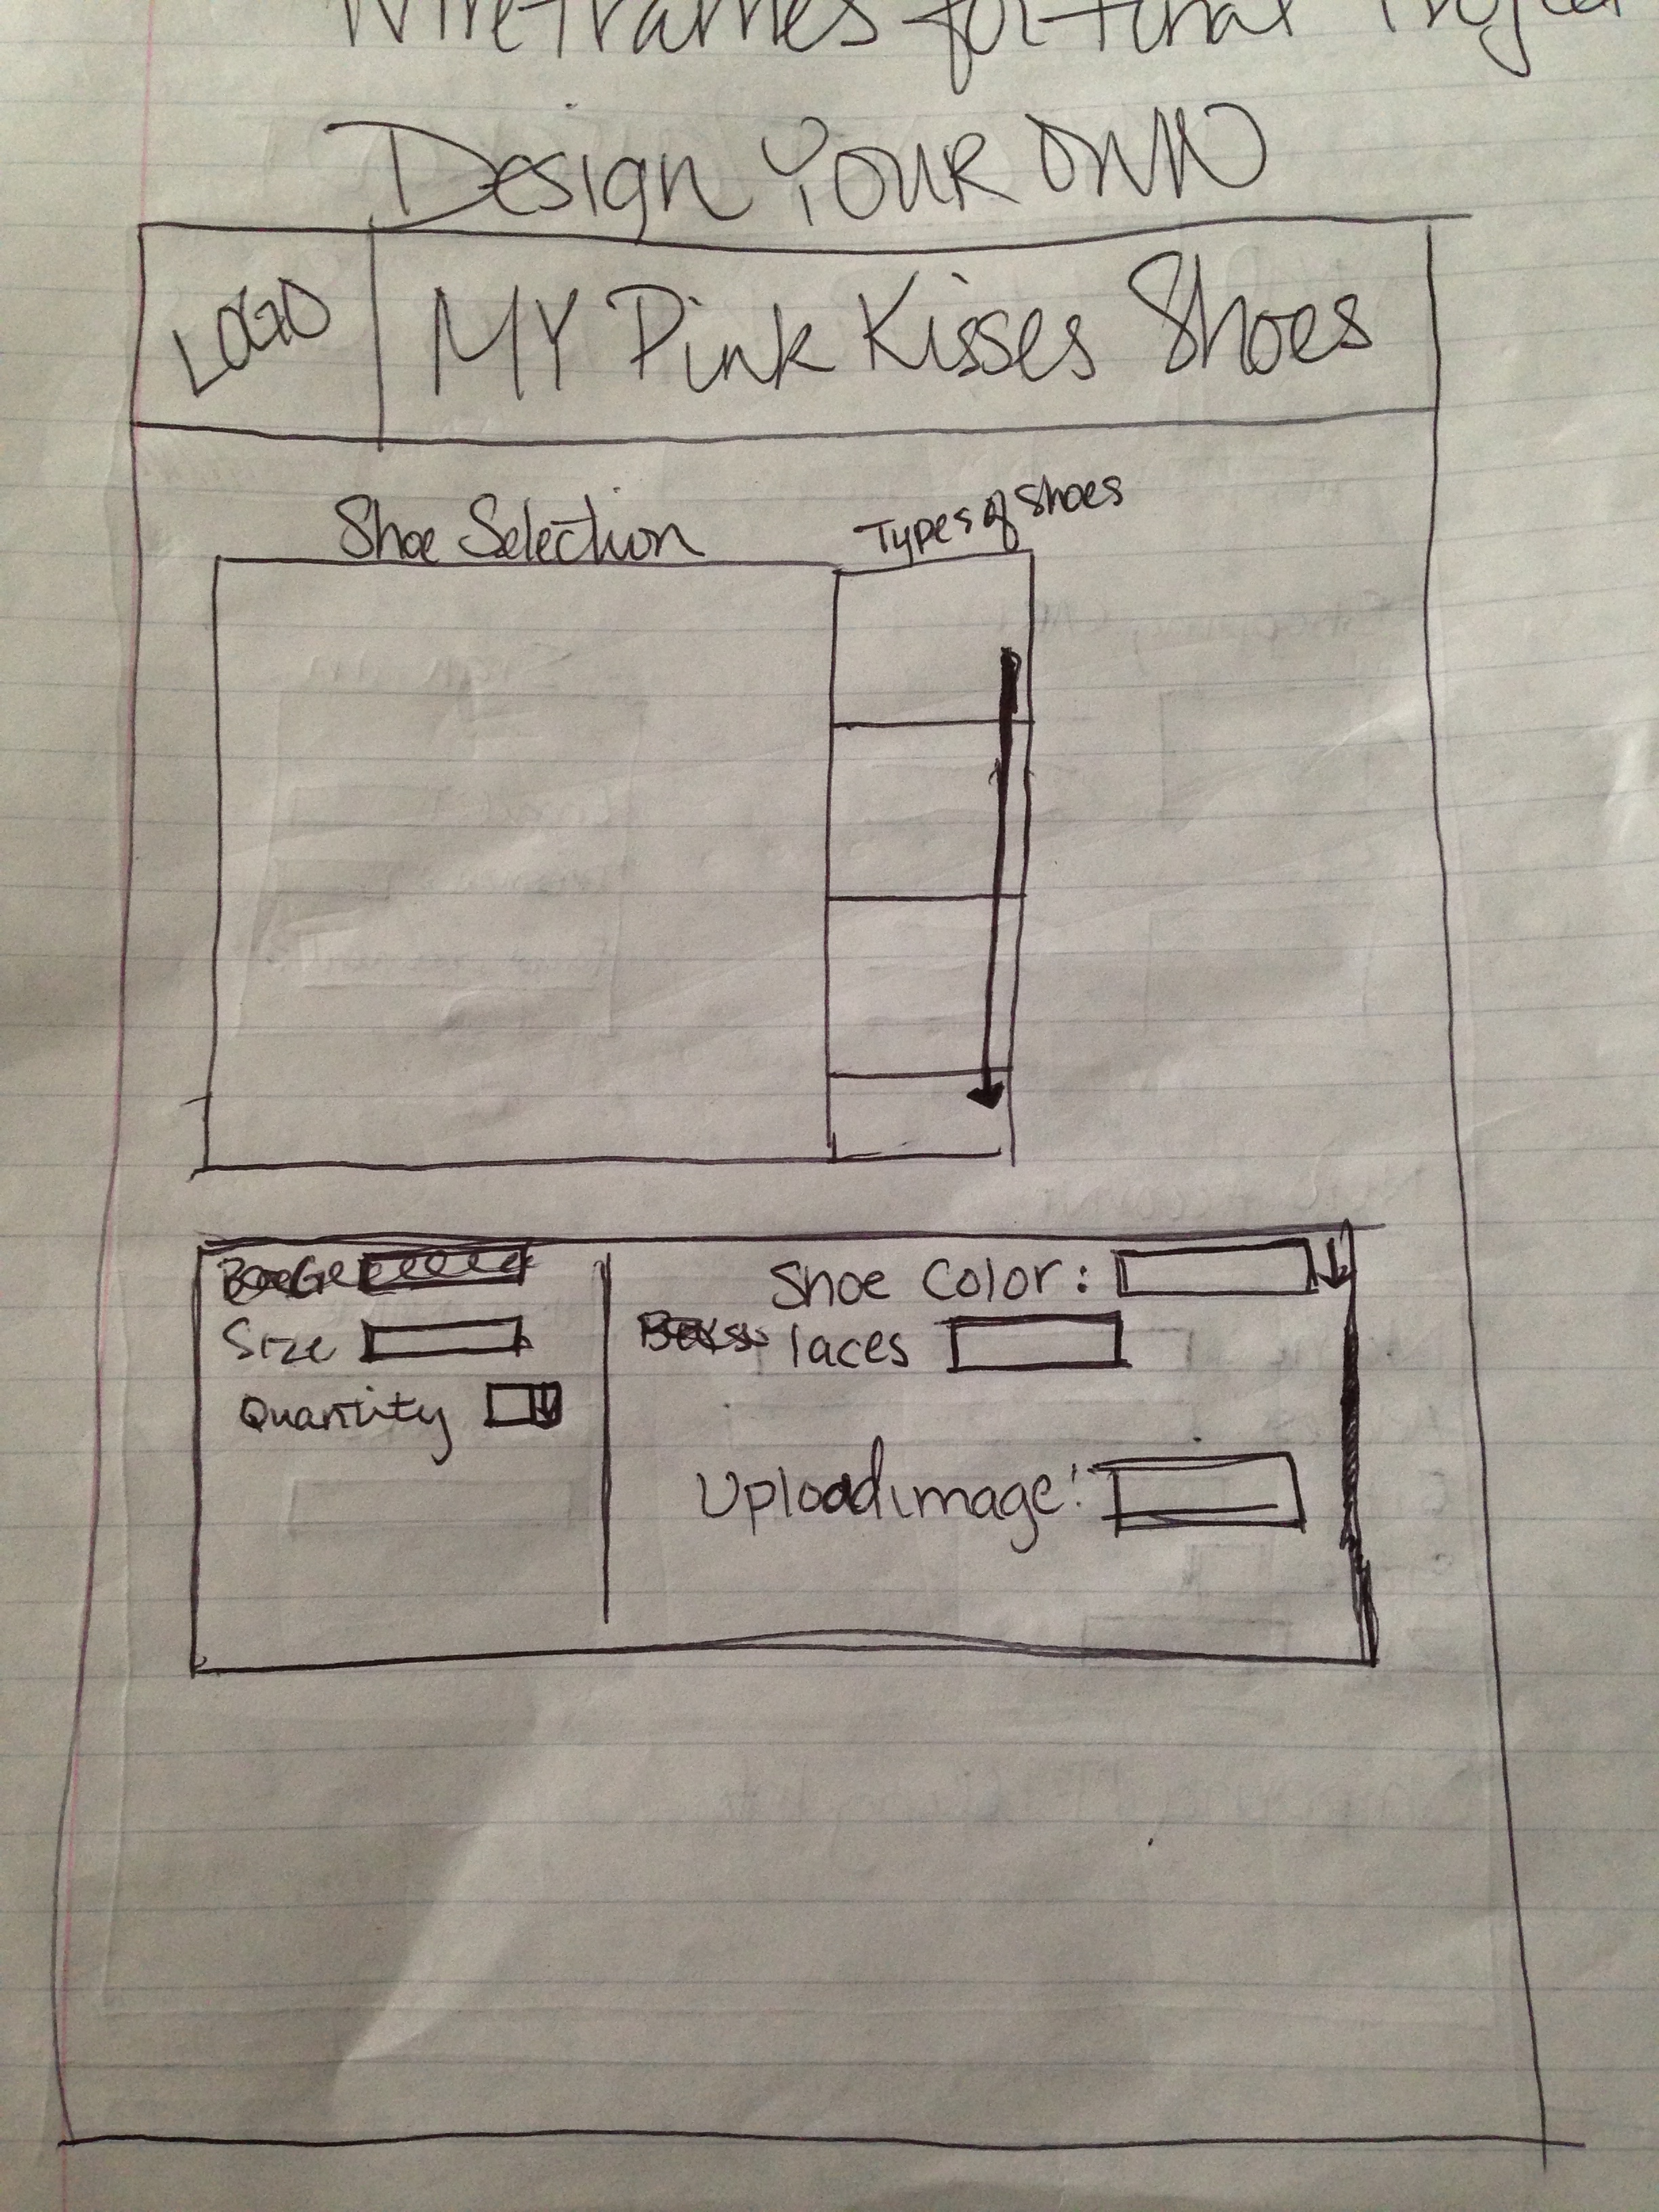 Wireframes for Final Project
Design YOUR OWN
LOGO
MY Pink Kisses Shoes
Shoe Selection
Types of Shoes
Size
Quantity
Shoe Color:
laces
Upload image: